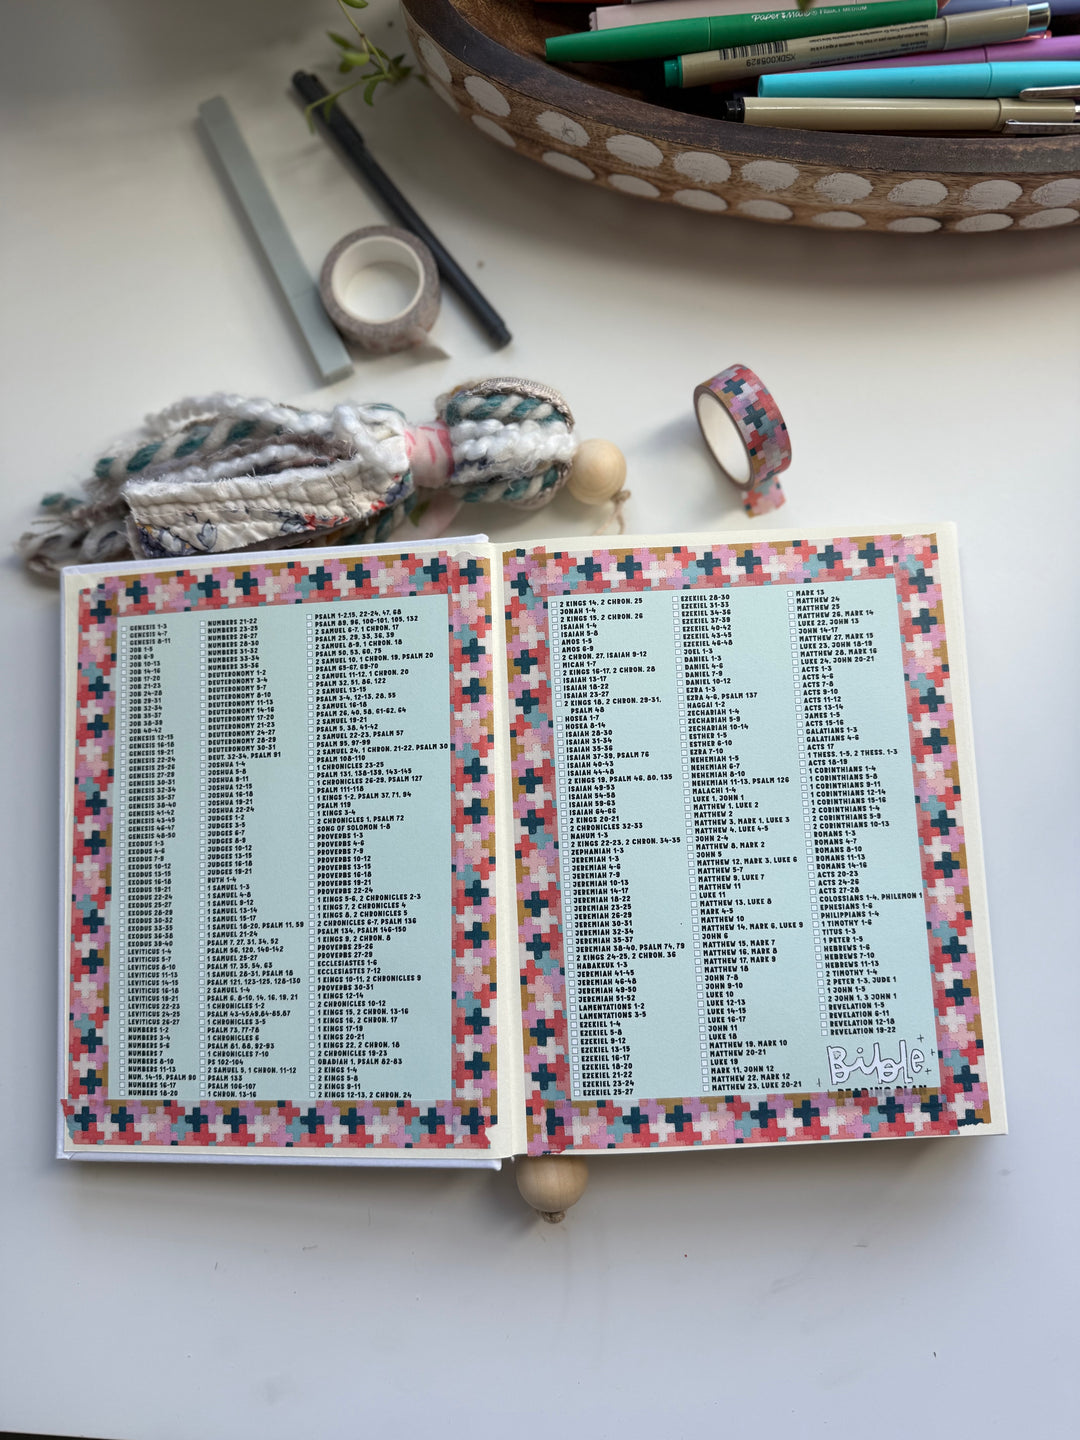 PAPER MATE FLAIR MEDIUM
XSDK005#29
GENESIS 1-3
GENESIS 4-7
GENESIS 8-11
JOB 1-5
JOB 6-9
JOB 10-13
JOB 14-16
JOB 17-20
JOB 21-23
JOB 24-28
JOB 29-31
JOB 32-34
JOB 35-37
JOB 38-39
JOB 40-42
GENESIS 12-15
GENESIS 16-18
GENESIS 19-21
GENESIS 22-24
GENESIS 25-26
GENESIS 27-29
GENESIS 30-31
GENESIS 32-34
GENESIS 35-37
GENESIS 38-40
GENESIS 41-42
GENESIS 43-45
GENESIS 46-47
GENESIS 48-50
EXODUS 1-3
EXODUS 4-6
EXODUS 7-9
EXODUS 10-12
EXODUS 13-15
EXODUS 16-18
EXODUS 19-21
EXODUS 22-24
EXODUS 25-27
EXODUS 28-29
EXODUS 30-32
EXODUS 33-35
EXODUS 36-38
EXODUS 39-40
LEVITICUS 1-4
LEVITICUS 5-7
LEVITICUS 8-10
LEVITICUS 11-13
LEVITICUS 14-15
LEVITICUS 16-18
LEVITICUS 19-21
LEVITICUS 22-23
LEVITICUS 24-25
LEVITICUS 26-27
NUMBERS 1-2
NUMBERS 3-4
NUMBERS 5-6
NUMBERS 7
NUMBERS 8-10
NUMBERS 11-13
NUM. 14-15, PSALM 90
NUMBERS 16-17
NUMBERS 18-20
NUMBERS 21-22
NUMBERS 23-25
NUMBERS 26-27
NUMBERS 28-30
NUMBERS 31-32
NUMBERS 33-34
NUMBERS 35-36
DEUTERONOMY 1-2
DEUTERONOMY 3-4
DEUTERONOMY 5-7
DEUTERONOMY 8-10
DEUTERONOMY 11-13
DEUTERONOMY 14-16
DEUTERONOMY 17-20
DEUTERONOMY 21-23
DEUTERONOMY 24-27
DEUTERONOMY 28-29
DEUTERONOMY 30-31
DEUT. 32-34, PSALM 91
JOSHUA 1-4
JOSHUA 5-8
JOSHUA 9-11
JOSHUA 12-15
JOSHUA 16-18
JOSHUA 19-21
JOSHUA 22-24
JUDGES 1-2
JUDGES 3-5
JUDGES 6-7
JUDGES 8-9
JUDGES 10-12
JUDGES 13-15
JUDGES 16-18
JUDGES 19-21
RUTH 1-4
1 SAMUEL 1-3
1 SAMUEL 4-8
1 SAMUEL 9-12
1 SAMUEL 13-14
1 SAMUEL 15-17
1 SAMUEL 18-20, PSALM 11, 59
1 SAMUEL 21-24
PSALM 7, 27, 31, 34, 52
PSALM 56, 120, 140-142
1 SAMUEL 25-27
PSALM 17, 35, 54, 63
1 SAMUEL 28-31, PSALM 18
PSALM 121, 123-125, 128-130
2 SAMUEL 1-4
PSALM 6, 8-10, 14, 16, 19, 21
1 CHRONICLES 1-2
PSALM 43-45,49,84-85,87
1 CHRONICLES 3-5
PSALM 73, 77-78
1 CHRONICLES 6
PSALM 81, 88, 92-93
1 CHRONICLES 7-10
PS 102-104
2 SAMUEL 5, 1 CHRON. 11-12
PSALM 133
PSALM 106-107
1 CHRON. 13-16
PSALM 1-2,15, 22-24, 47, 68
PSALM 89, 96, 100-101, 105, 132
2 SAMUEL 6-7, 1 CHRON. 17
PSALM 25, 29, 33, 36, 39
2 SAMUEL 8-9, 1 CHRON. 18
PSALM 50, 53, 60, 75
2 SAMUEL 10, 1 CHRON. 19, PSALM 20
PSALM 65-67, 69-70
2 SAMUEL 11-12, 1 CHRON. 20
PSALM 32, 51, 86, 122
2 SAMUEL 13-15
PSALM 3-4, 12-13, 28, 55
2 SAMUEL 16-18
PSALM 26, 40, 58, 61-62, 64
2 SAMUEL 19-21
PSALM 5, 38, 41-42
2 SAMUEL 22-23, PSALM 57
PSALM 95, 97-99
2 SAMUEL 24, 1 CHRON. 21-22, PSALM 30
PSALM 108-110
1 CHRONICLES 23-25
PSALM 131, 138-139, 143-145
1 CHRONICLES 26-29, PSALM 127
PSALM 111-118
1 KINGS 1-2, PSALM 37, 71, 94
PSALM 119
1 KINGS 3-4
2 CHRONICLES 1, PSALM 72
SONG OF SOLOMON 1-8
PROVERBS 1-3
PROVERBS 4-6
PROVERBS 7-9
PROVERBS 10-12
PROVERBS 13-15
PROVERBS 16-18
PROVERBS 19-21
PROVERBS 22-24
1 KINGS 5-6, 2 CHRONICLES 2-3
1 KINGS 7, 2 CHRONICLES 4
1 KINGS 8, 2 CHRONICLES 5
2 CHRONICLES 6-7, PSALM 136
PSALM 134, PSALM 146-150
1 KINGS 9, 2 CHRON. 8
PROVERBS 25-26
PROVERBS 27-29
ECCLESIASTES 1-6
ECCLESIASTES 7-12
1 KINGS 10-11, 2 CHRONICLES 9
PROVERBS 30-31
1 KINGS 12-14
2 CHRONICLES 10-12
1 KINGS 15, 2 CHRON. 13-16
1 KINGS 16, 2 CHRON. 17
1 KINGS 17-19
1 KINGS 20-21
1 KINGS 22, 2 CHRON. 18
2 CHRONICLES 19-23
OBADIAH 1, PSALM 82-83
2 KINGS 1-4
2 KINGS 5-8
2 KINGS 9-11
2 KINGS 12-13, 2 CHRON. 24
2 KINGS 14, 2 CHRON. 25
JONAH 1-4
2 KINGS 15, 2 CHRON. 26
ISAIAH 1-4
ISAIAH 5-8
AMOS 1-5
AMOS 6-9
2 CHRON. 27, ISAIAH 9-12
MICAH 1-7
2 KINGS 16-17, 2 CHRON. 28
ISAIAH 13-17
ISAIAH 18-22
ISAIAH 23-27
2 KINGS 18, 2 CHRON. 29-31,
PSALM 48
HOSEA 1-7
HOSEA 8-14
ISAIAH 28-30
ISAIAH 31-34
ISAIAH 35-36
ISAIAH 37-39, PSALM 76
ISAIAH 40-43
ISAIAH 44-48
2 KINGS 19, PSALM 46, 80, 135
ISAIAH 49-53
ISAIAH 54-58
ISAIAH 59-63
ISAIAH 64-66
2 KINGS 20-21
2 CHRONICLES 32-33
NAHUM 1-3
2 KINGS 22-23, 2 CHRON. 34-35
ZEPHANIAH 1-3
JEREMIAH 1-3
JEREMIAH 4-6
JEREMIAH 7-9
JEREMIAH 10-13
JEREMIAH 14-17
JEREMIAH 18-22
JEREMIAH 23-25
JEREMIAH 26-29
JEREMIAH 30-31
JEREMIAH 32-34
JEREMIAH 35-37
JEREMIAH 38-40, PSALM 74, 79
2 KINGS 24-25, 2 CHRON. 36
HABAKKUK 1-3
JEREMIAH 41-45
JEREMIAH 46-48
JEREMIAH 49-50
JEREMIAH 51-52
LAMENTATIONS 1-2
LAMENTATIONS 3-5
EZEKIEL 1-4
EZEKIEL 5-8
EZEKIEL 9-12
EZEKIEL 13-15
EZEKIEL 16-17
EZEKIEL 18-20
EZEKIEL 21-22
EZEKIEL 23-24
EZEKIEL 25-27
EZEKIEL 28-30
EZEKIEL 31-33
EZEKIEL 34-36
EZEKIEL 37-39
EZEKIEL 40-42
EZEKIEL 43-45
EZEKIEL 46-48
JOEL 1-3
DANIEL 1-3
DANIEL 4-6
DANIEL 7-9
DANIEL 10-12
EZRA 1-3
EZRA 4-6, PSALM 137
HAGGAI 1-2
ZECHARIAH 1-4
ZECHARIAH 5-9
ZECHARIAH 10-14
ESTHER 1-5
ESTHER 6-10
EZRA 7-10
NEHEMIAH 1-5
NEHEMIAH 6-7
NEHEMIAH 8-10
NEHEMIAH 11-13, PSALM 126
MALACHI 1-4
LUKE 1, JOHN 1
MATTHEW 1, LUKE 2
MATTHEW 2
MATTHEW 3, MARK 1, LUKE 3
MATTHEW 4, LUKE 4-5
JOHN 2-4
MATTHEW 8, MARK 2
JOHN 5
MATTHEW 12, MARK 3, LUKE 6
MATTHEW 5-7
MATTHEW 9, LUKE 7
MATTHEW 11
LUKE 11
MATTHEW 13, LUKE 8
MARK 4-5
MATTHEW 10
MATTHEW 14, MARK 6, LUKE 9
JOHN 6
MATTHEW 15, MARK 7
MATTHEW 16, MARK 8
MATTHEW 17, MARK 9
MATTHEW 18
JOHN 7-8
JOHN 9-10
LUKE 10
LUKE 12-13
LUKE 14-15
LUKE 16-17
JOHN 11
LUKE 18
MATTHEW 19, MARK 10
MATTHEW 20-21
LUKE 19
MARK 11, JOHN 12
MATTHEW 22, MARK 12
MATTHEW 23, LUKE 20-21
MARK 13
MATTHEW 24
MATTHEW 25
MATTHEW 26, MARK 14
LUKE 22, JOHN 13
JOHN 14-17
MATTHEW 27, MARK 15
LUKE 23, JOHN 18-19
MATTHEW 28, MARK 16
LUKE 24, JOHN 20-21
ACTS 1-3
ACTS 4-6
ACTS 7-8
ACTS 9-10
ACTS 11-12
ACTS 13-14
JAMES 1-5
ACTS 15-16
GALATIANS 1-3
GALATIANS 4-6
ACTS 17
1 THESS. 1-5, 2 THESS. 1-3
ACTS 18-19
1 CORINTHIANS 1-4
1 CORINTHIANS 5-8
1 CORINTHIANS 9-11
1 CORINTHIANS 12-14
1 CORINTHIANS 15-16
2 CORINTHIANS 1-4
2 CORINTHIANS 5-9
2 CORINTHIANS 10-13
ROMANS 1-3
ROMANS 4-7
ROMANS 8-10
ROMANS 11-13
ROMANS 14-16
ACTS 20-23
ACTS 24-26
ACTS 27-28
COLOSSIANS 1-4, PHILEMON 1
EPHESIANS 1-6
PHILIPPIANS 1-4
1 TIMOTHY 1-6
TITUS 1-3
1 PETER 1-5
HEBREWS 1-6
HEBREWS 7-10
HEBREWS 11-13
2 TIMOTHY 1-4
2 PETER 1-3, JUDE 1
1 JOHN 1-5
2 JOHN 1, 3 JOHN 1
REVELATION 1-5
REVELATION 6-11
REVELATION 12-18
REVELATION 19-22
Bible
READING PLAN